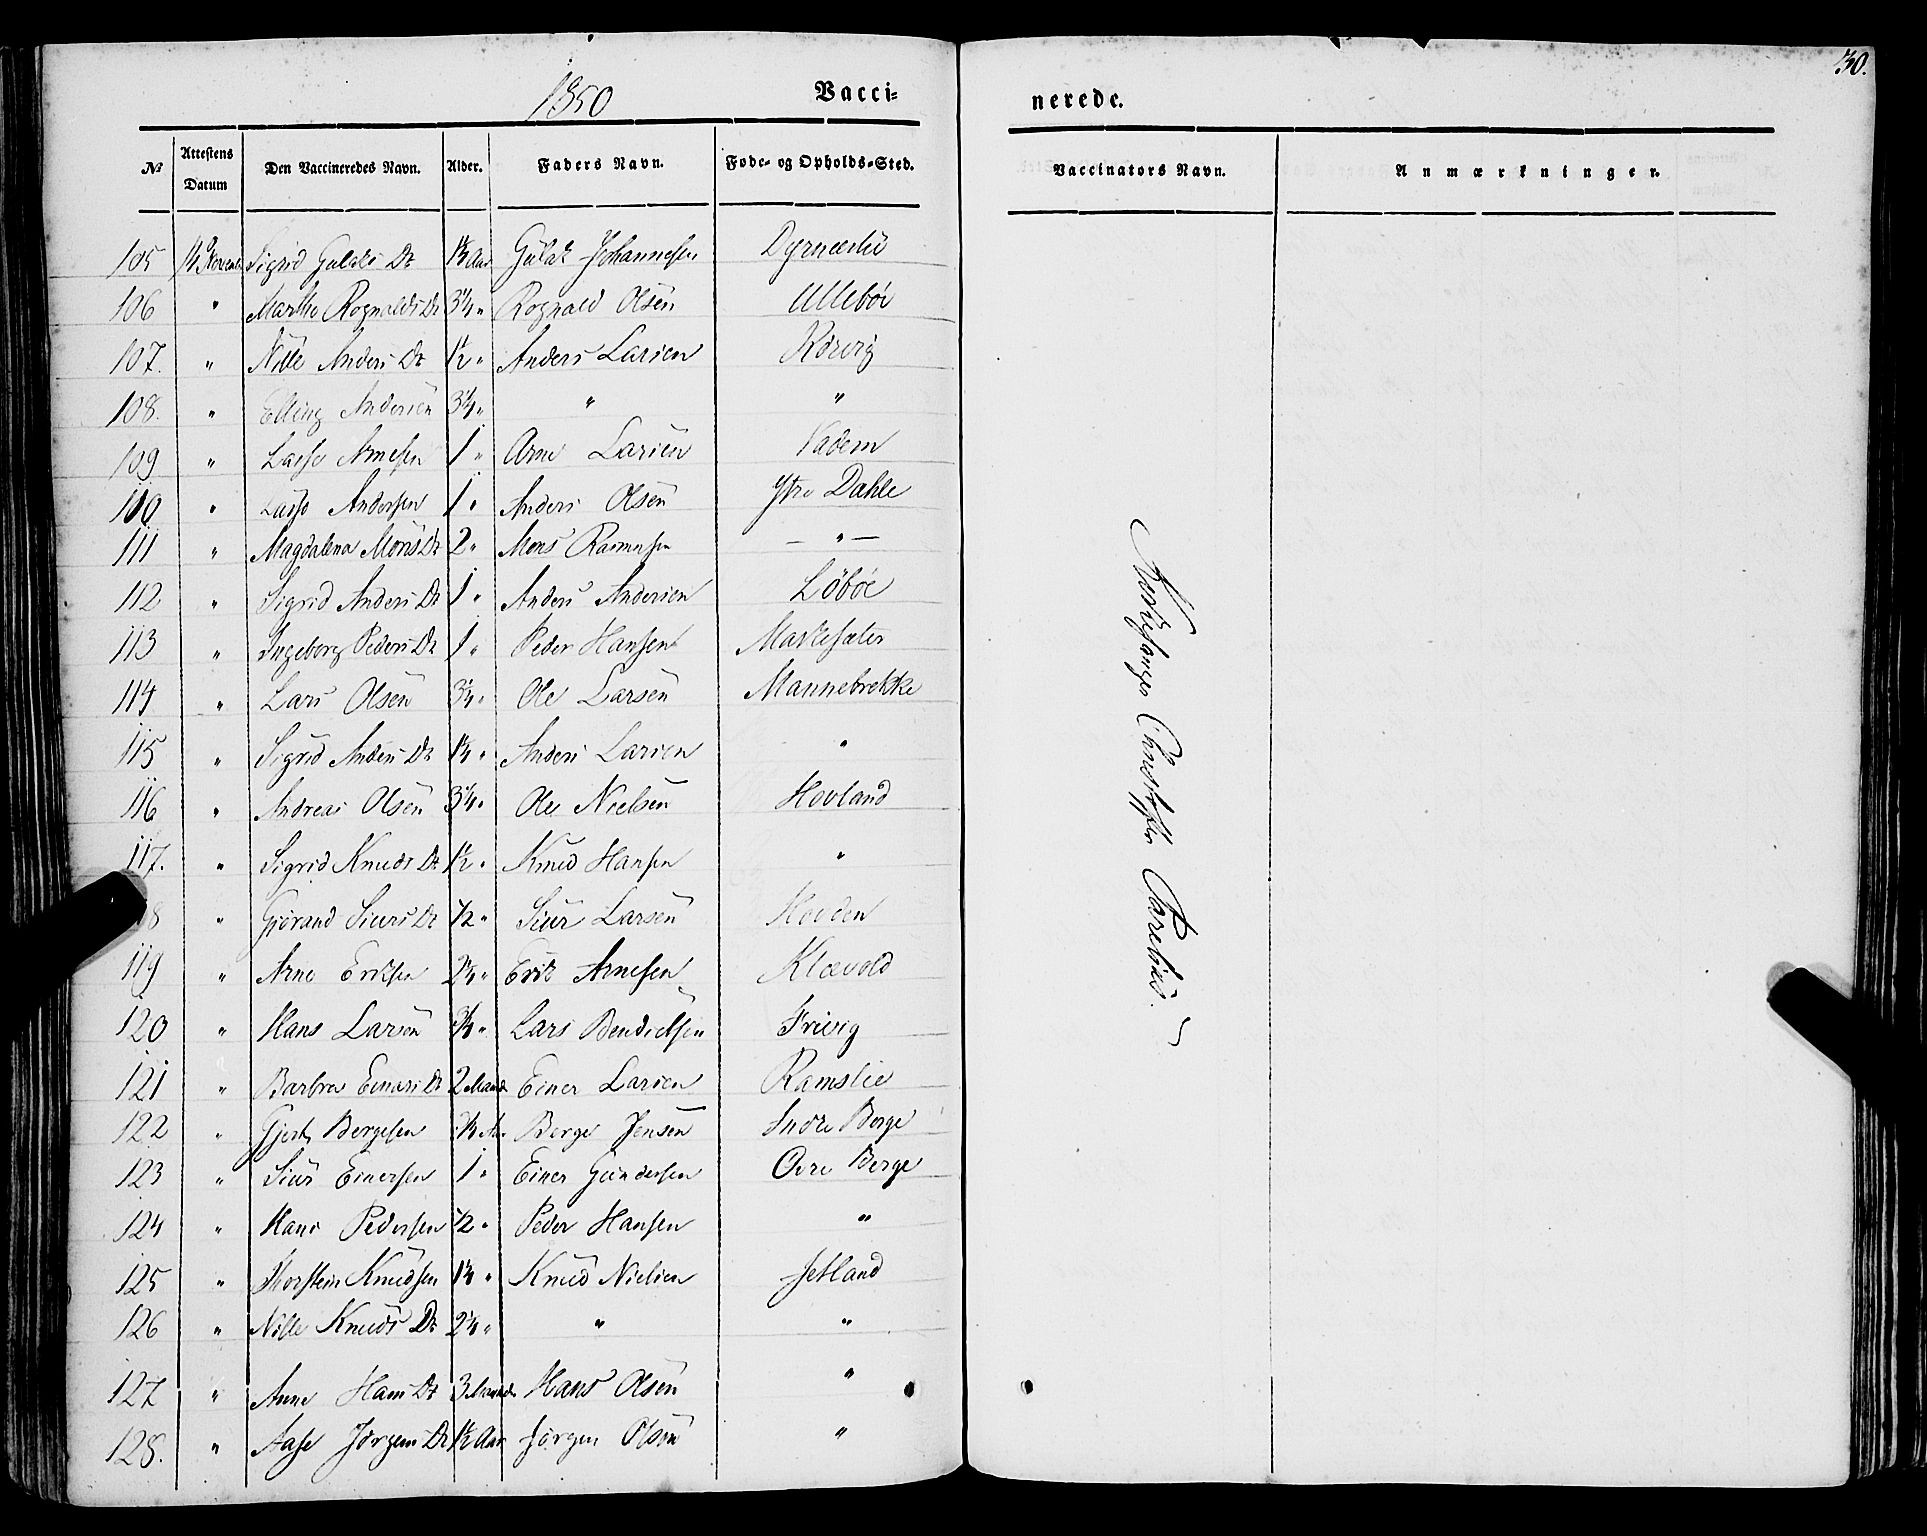 30.
1850
Vacci-
nerede.
No Attestens Datum Den Vaccineredes Navn. Alder. Faders Navn. Føde- og Opholds-Sted. Vaccinators Navn. Anmærkninger.
105 Sigrid Dr Aar Johannesen
106 " Marthe Rognalds Dr 3/4 " Rognald Olsen Ullebøe
107. " Nille Anders Dr 1/2 " Anders Larsen Rörvig
108. " Elling Andersen 3/4 " " "
109 " Lasse Arnesen 1 " Arne Larsen Vadem
110 " Lasse Andersen 1 " Anders Olsen Ytre Dahle
111 " Magdalena Mons Dr 2 " Mons Rasmusen — " —
112 " Sigrid Anders Dr 1 " Anders Andersen Löböe
113 " Ingeborg Peders Dr 1 " Peder Hansen Maskesæter
114 " Lars Olsen 3/4 " Ole Larsen Mannebrekke
115 " Sigrid Anders Dr 1 1/4 " Anders Larsen "
116 " Andreas Olsen 3/4 " Ole Nielsen Hovland
117. " Sigrid Knuds Dr 1 1/2 " Knud Hansen "
8 " Gjörand Siurs Dr 1/2 " Siur Larsen Hovden
119 " Arne Eriksen 2 1/4 " Erik Arnesen Klævold
120 " Hans Larsen 3/4 " Lars Bendictsen Frivig
121 " Barbra Einars Dr 2 Maand Einer Larsen Ramslie
122 " Gjert Bergesen Berge Jensen Indre Berge
123 " Siur Einersen 1 " Einer Gundersen Övre Berge
124 " Hans Pedersen 1/2 " Peder Hansen "
125 " Thorstein Knudsen 1 1/4 " Knud Nielsen Setland
126 " Nille Knuds Dr 2 1/4 " " "
127 " Anne Hans Dr 3 Maand Hans Olsen "
128. " Aase Jörgens Dr 1 1/2 Aar Jörgen Olsen "
Kirkesanger Christopher Parelius.